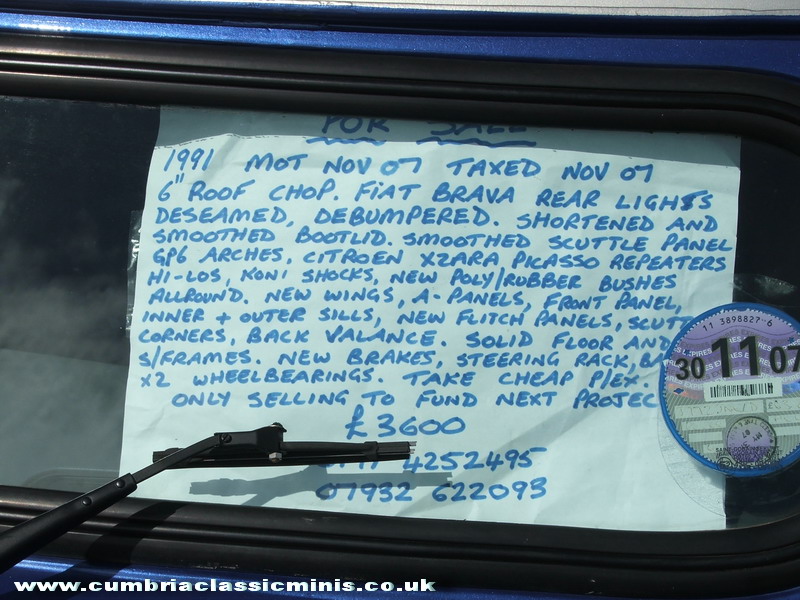 FOR SALE
1991 MOT NOV 07 TAXED NOV 07
6" ROOF CHOP. FIAT BRAVA REAR LIGHTS
DESEAMED, DEBUMPERED. SHORTENED AND
SMOOTHED BOOTLID. SMOOTHED SCUTTLE PANEL
GP6 ARCHES, CITROEN XZARA PICASSO REPEATERS
HI-LOS, KONI SHOCKS, NEW POLY/RUBBER BUSHES
ALLROUND. NEW WINGS, A-PANELS, FRONT PANEL,
INNER + OUTER SILLS, NEW FLITCH PANELS, SCUTT
CORNERS, BACK VALANCE. SOLID FLOOR AND
S/FRAMES. NEW BRAKES, STEERING RACK, BA
X2 WHEELBEARINGS. TAKE CHEAP P/EX.
ONLY SELLING TO FUND NEXT PROJEC
£3600
4252495
07932 622093
11 3898827 6
30 11 07
www.cumbriaclassicminis.co.uk